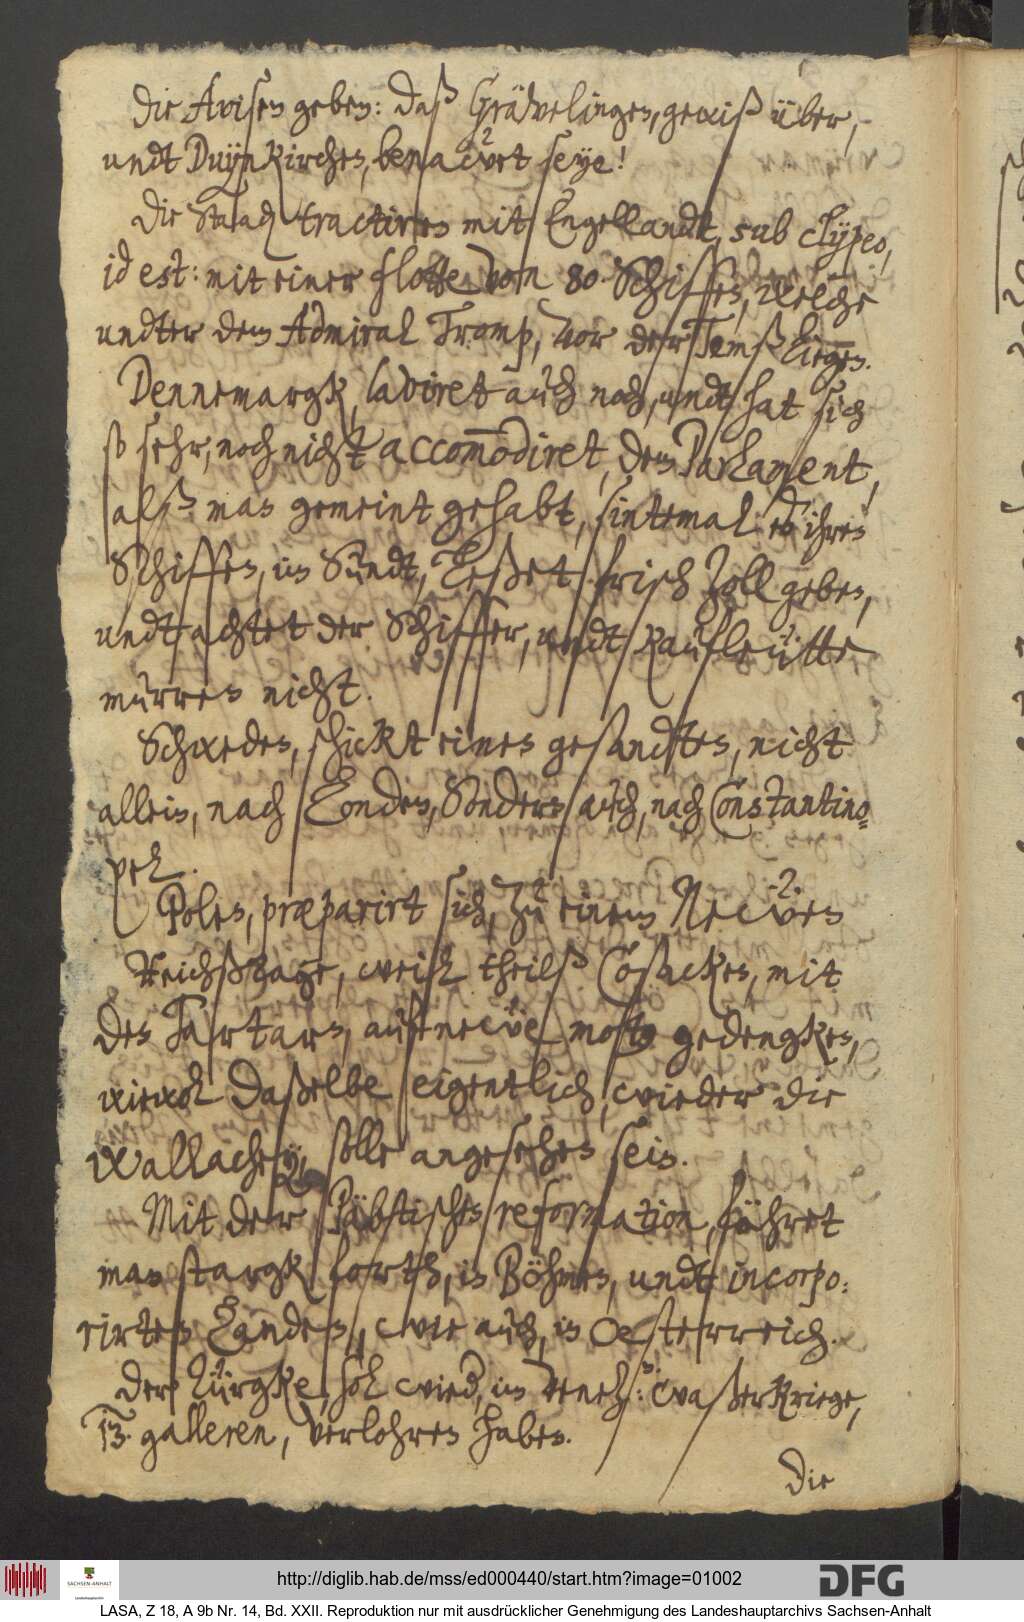 Die Avisen geben: daß Grävelingen, gewiß über,
undt Duynkirchen, benawet seye!
Die Staadn tractiren mit Engellandt, sub clÿpeo,
id est: mit einer flotte von 80 Schiffen, welche
undter dem Admiral Tromp, vor der Temß liegen.
Dennemargk, laviret auch noch, undt hat sich
so sehr, noch nicht accom̄odiret, dem Parlament,
alß man gemeint gehabt, sintemal es ihren
Schiffen, im Sundt, leßet frisch Zoll geben,
undt achtet der Schiffer, undt Kaufleütte
murren nicht.
Schweden, schickt einen gesandten, nicht
allein, nach Londen, Sondern auch, nach Constantino=
pel.
Polen, præparirt sich, zu einem Newen
Reichßtage, weil theilß Cosacken, mit
den Tartarn, auf newe molta gedengken,
wiewol daßelbe eigentlich, wieder die
Wallachey, solle angesehen sein.
Mit der Päbstischen reformation, fähret
man stargk forth, in Böhmen, undt incorpo:
rirten Landen, wie auch, in Oesterreich.
Der Türgke, sol wied, im Venetz: waßerKriege,
13. galleren, verlohren haben.
Die
http://diglib.hab.de/mss/ed000440/start.htm?image=01002
SACHSEN-ANHALT
DFG
LASA, Z 18, A 9b Nr. 14, Bd. XXII. Reproduktion nur mit ausdrücklicher Genehmigung des Landeshauptarchivs Sachsen-Anhalt